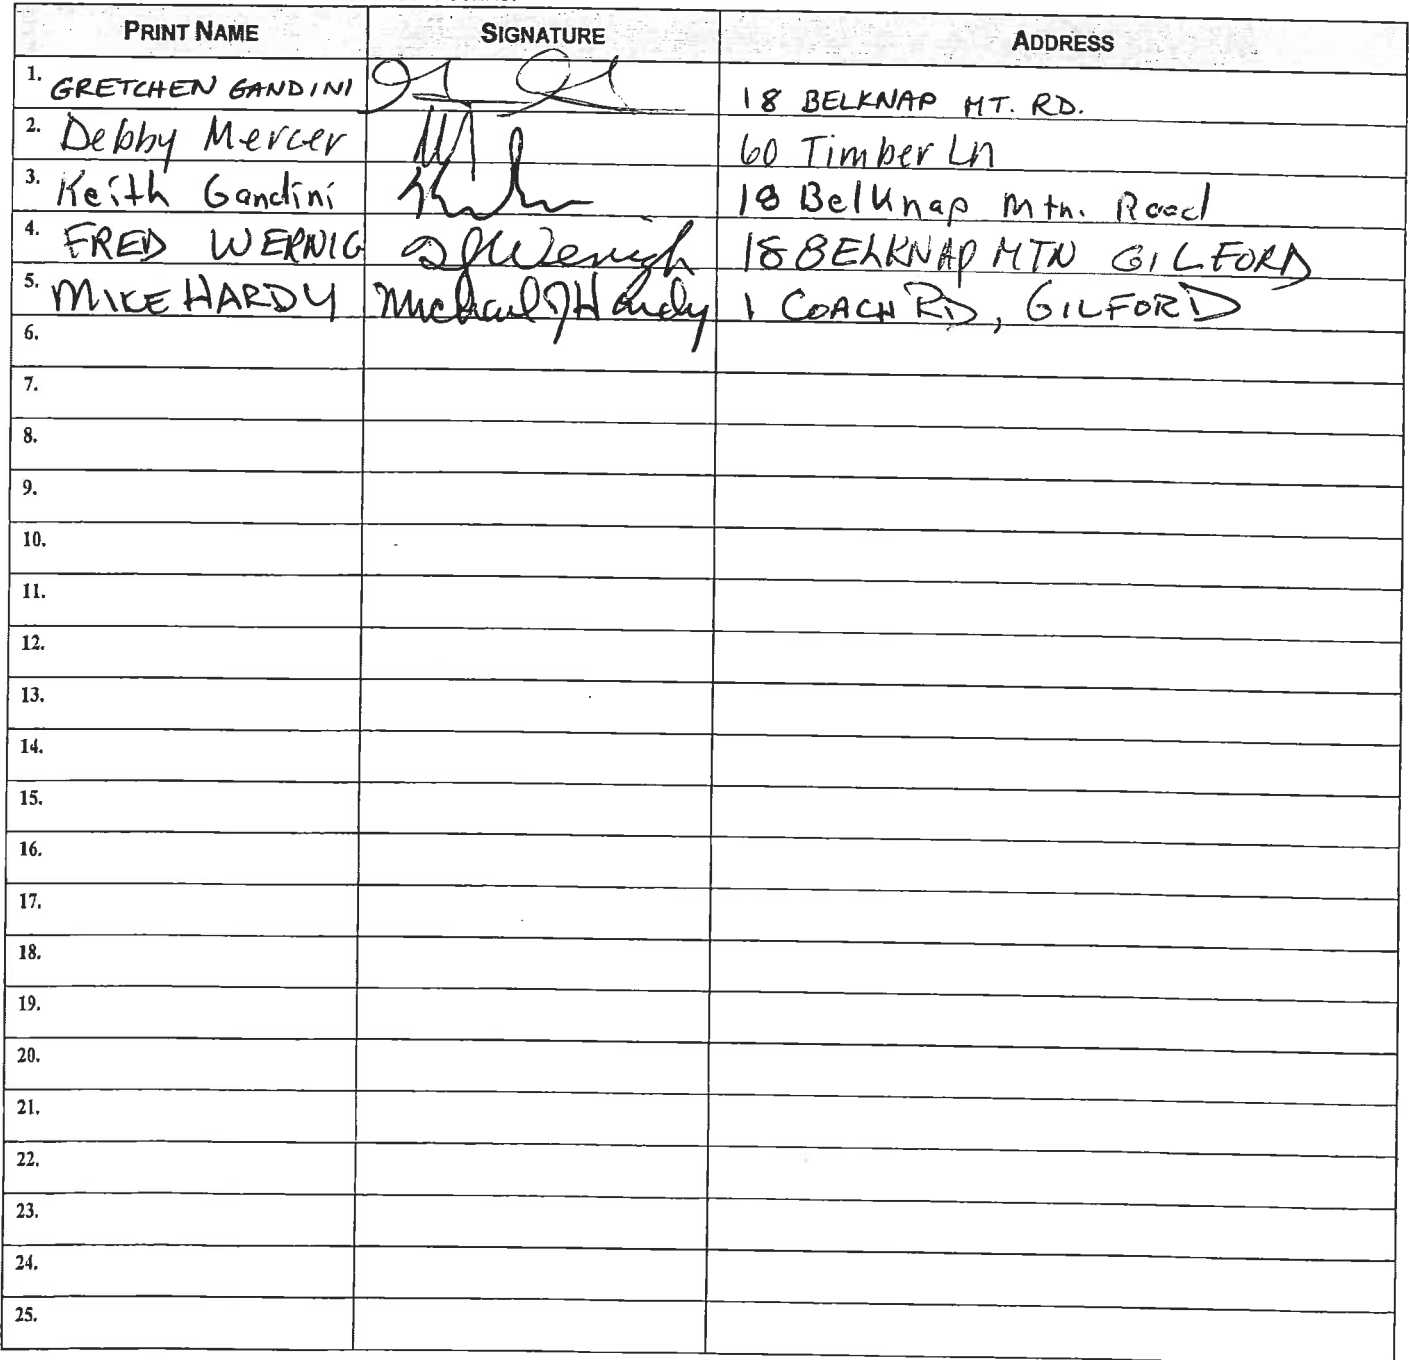 PRINT NAME SIGNATURE ADDRESS
1. GRETCHEN GANDINI 18 BELKNAP MT. RD.
2. Debby Mercer 60 Timber Ln
3. Keith Gandini 18 Belknap Mtn. Road
4. FRED WERNIG 18 BELKNAP MTN GILFORD
5. MIKE HARDY Michael J Hardy 1 COACH RD, GILFORD
6.
7.
8.
9.
10.
11.
12.
13.
14.
15.
16.
17.
18.
19.
20.
21.
22.
23.
24.
25.